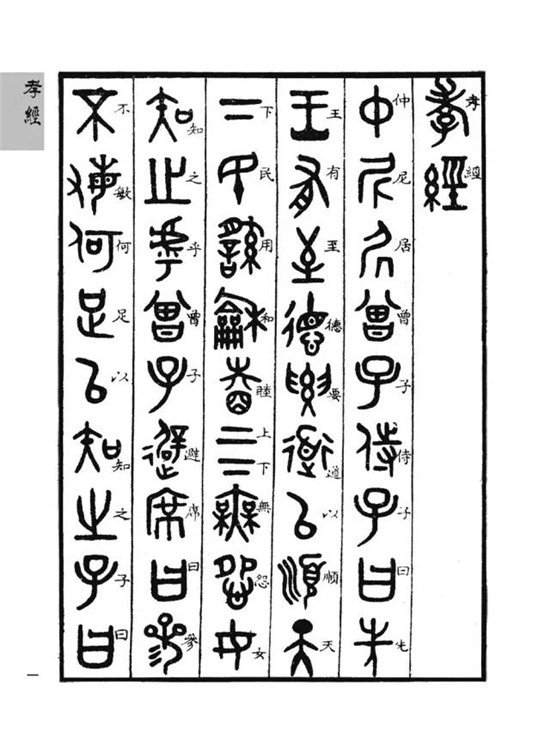 孝經
孝經
仲尼居曾子侍子曰先
王有至德要道以順天
下民用和睦上下無怨女
知之乎曾子避席曰參
不敏何足以知之子曰
一